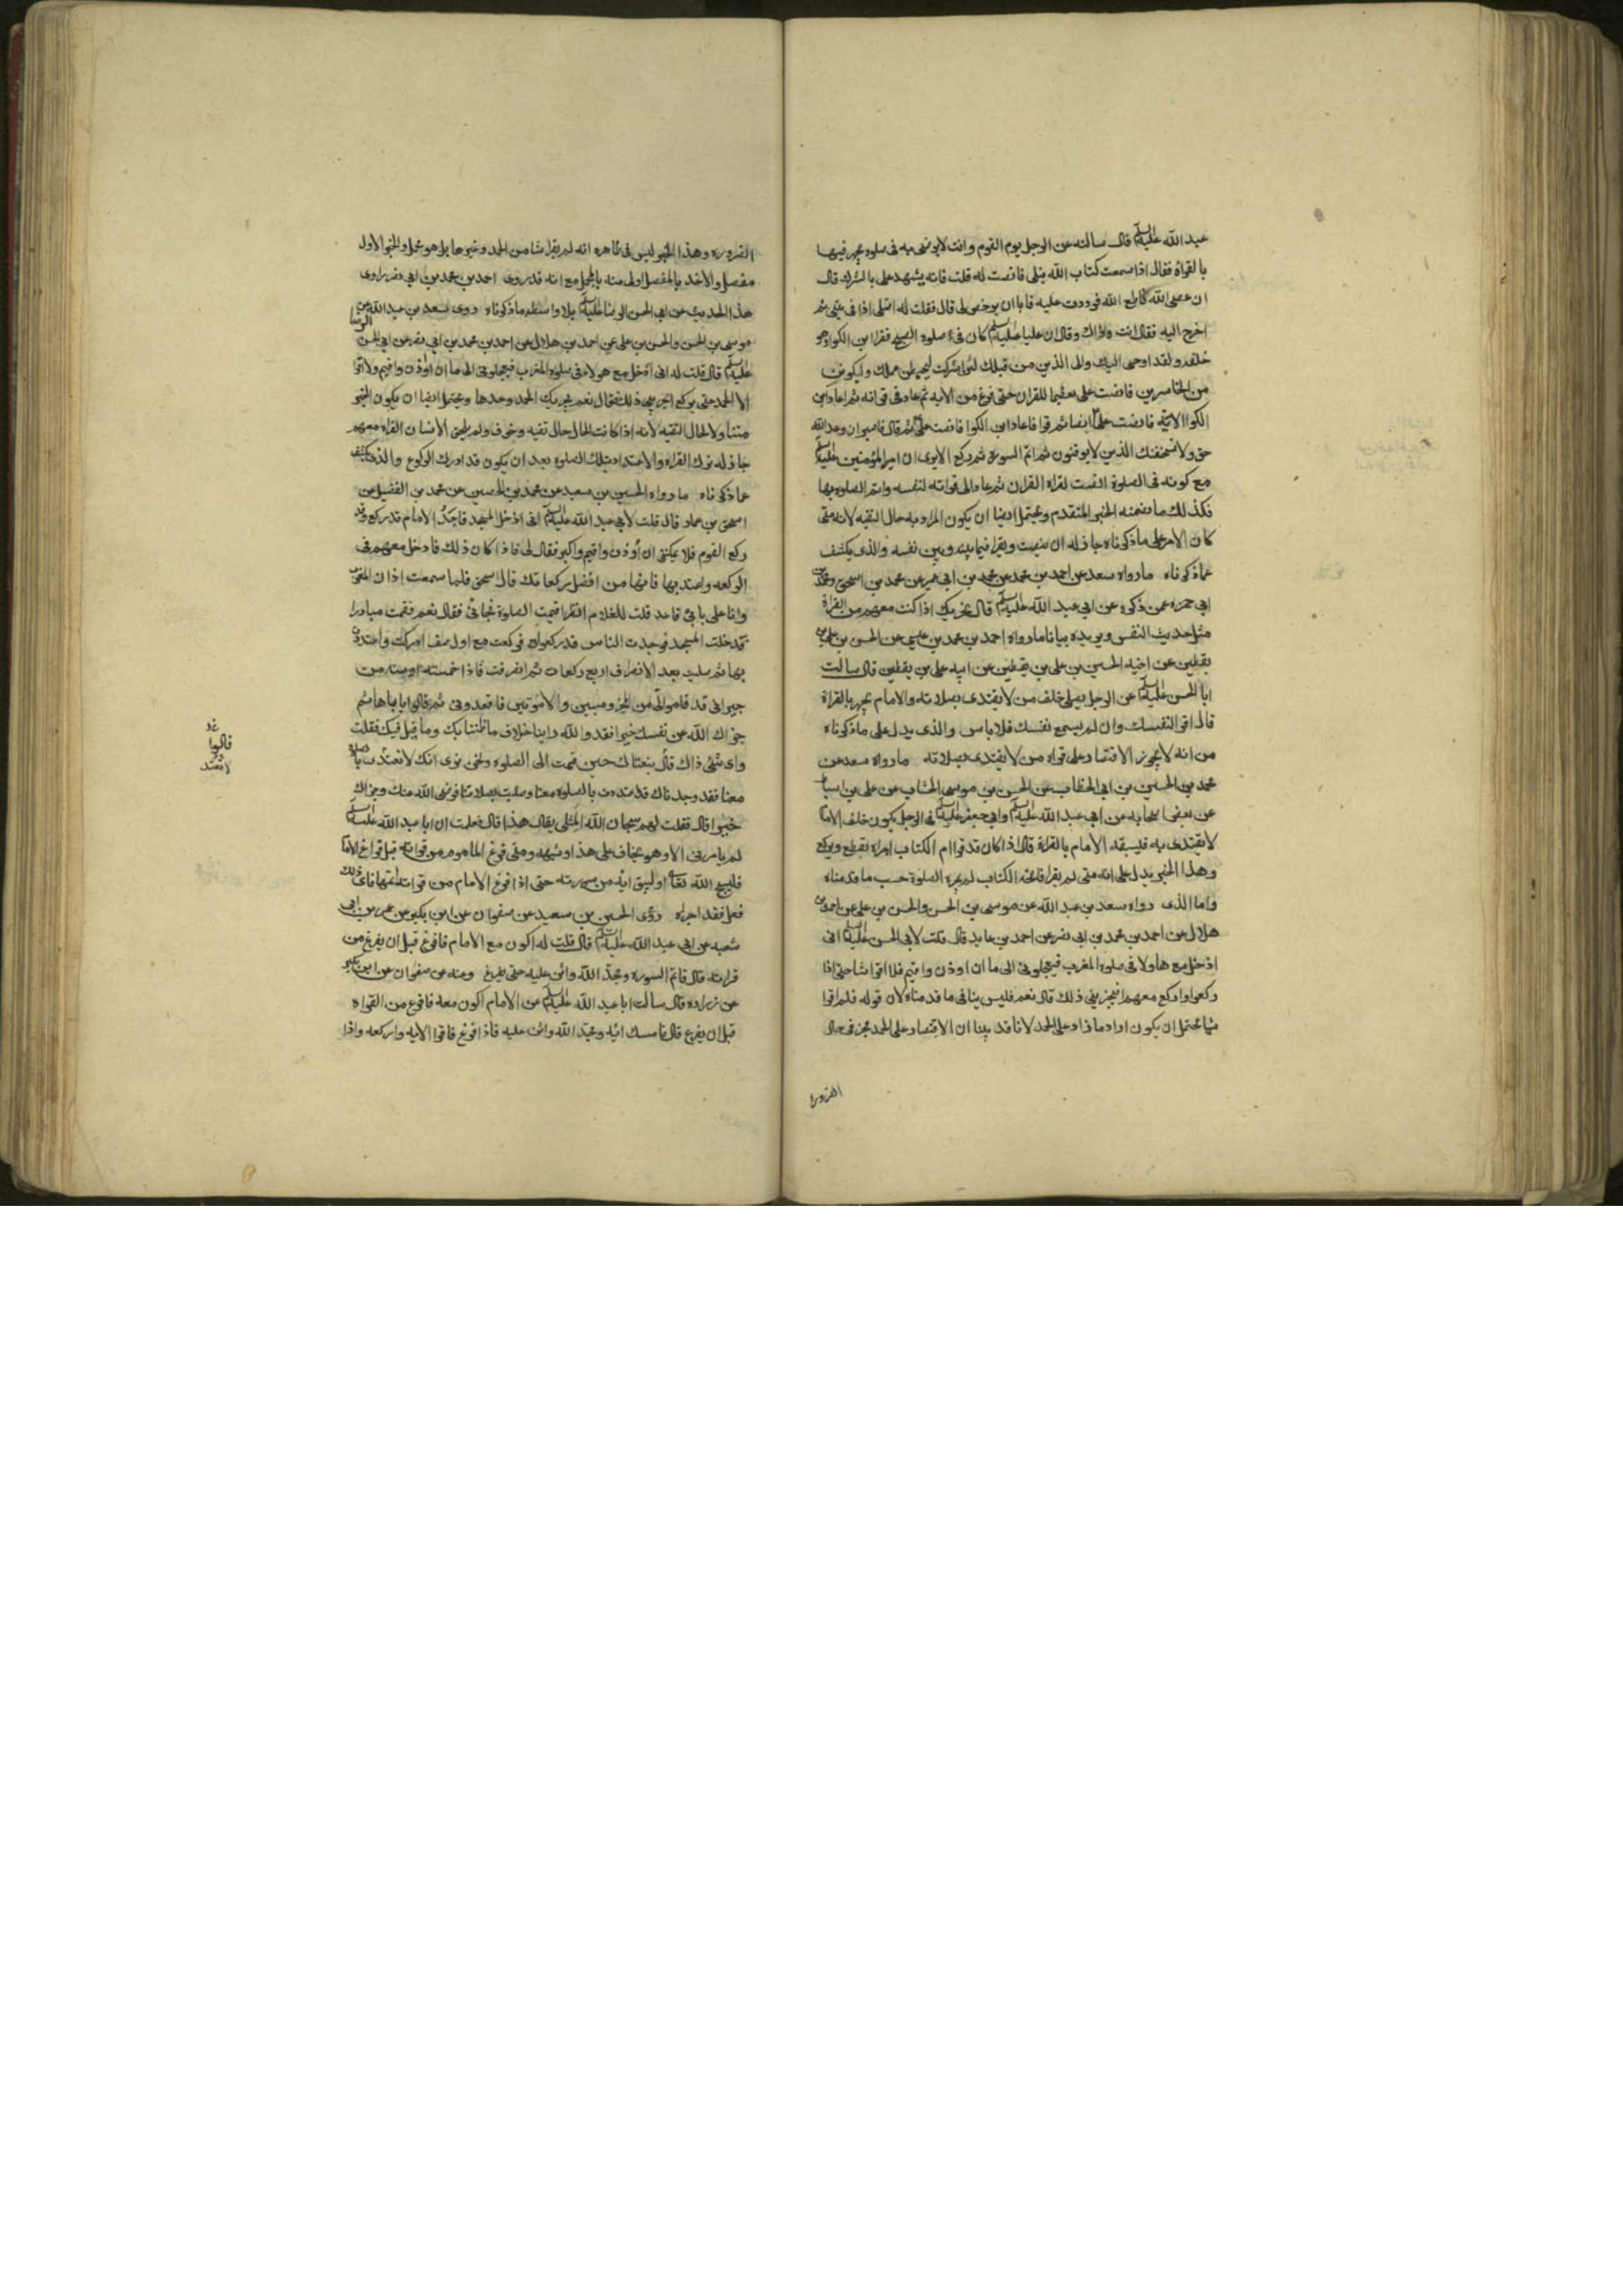 عبد الله عليه السلم قال سالته عن الرجل يوم القوم وانت لا ترضى به فى صلوة يجهر فيها
بالقراة فقال اذا سمعت كتاب الله يتلى فانصت له قلت فانه يشهد على بالشرك قال
ان عصى الله فاطع الله فرددت عليه فابا ان يرخص لى قال فقلت له اصلى اذا فى بيتى ثم
اخرج اليه فقال انت وذاك وقال ان عليا عليه السلم كان فى صلوة الصبح فقرا ابن الكوا وهو
خلفه ولقد اوحى اليك والى الذين من قبلك لئن اشركت ليحبطن عملك ولتكونن
من الخاسرين فانصت على تعظيما للقران حتى فرغ من الاية ثم عاد فى قراته ثم اعاد ابن
الكوا الاية فانصت على ايضا ثم قرا فاعاد ابن الكوا فانصت على ثم قال فاصبر ان وعد الله
حق ولا يستخفنك الذين لا يوقنون ثم اتم السورة ثم ركع الا يرى ان امير المؤمنين عليه السلم
مع كونه فى الصلوة انصت لقراة القران ثم عاد الى قراته لنفسه واتم الصلوة بها
فكذلك ما تضمنه الخبر المتقدم ويحتمل ايضا ان يكون المراد به حال التقيه لانه متى
كان الامر على ما ذكرناه جاز له ان ينصت ويقرا فيما بينه وبين نفسه والذى يكشف
عما ذكرناه ما رواه سعد عن احمد بن محمد عن محمد بن ابى عمير عن محمد بن اسحق ومحمد بن
ابى حمزه عمن ذكره عن ابى عبد الله عليه السلم قال يجزيك اذا كنت معهم من القراة
مثل حديث النفس ويزيده بيانا ما رواه احمد بن محمد بن عيسى عن الحسن بن على بن
يقطين عن اخيه الحسين بن على بن يقطين عن ابيه على بن يقطين قال سالت
ابا الحسن عليه السلم عن الرجل يصلى خلف من لا يقتدى بصلاته والامام يجهر بالقراة
قال اقرا لنفسك وان لم يسمع نفسك فلا باس والذى يدل على ما ذكرناه
من انه لا يجوز الاقتصار على قراه من لا يقتدى بصلاته ما رواه سعد عن
محمد بن الحسين بن ابى الخطاب عن الحسن بن موسى الخشاب عن على بن اسباط
عن بعض اصحابه عن ابى عبد الله عليه السلم وابى جعفر عليه السلم فى الرجل يكون خلف الامام
لا يقتدى به فيسبقه الامام بالقراة قال اذا كان قد قرا ام الكتاب اجزاه يقطع ويركع
وهذا الخبر يدل على انه متى لم يقرا فاتحة الكتاب لم يجزه الصلوة حسب ما قدمناه
واما الذى رواه سعد بن عبد الله عن موسى بن الحسن والحسن بن على عن احمد بن
هلال عن احمد بن محمد بن ابى نصر عن احمد بن عايد قال قلت لابى الحسن عليه السلم انى
ادخل مع هاولا فى صلوة المغرب فيعجلونى الى ما ان اوذن واقيم فلا اقرا شيا حتى اذا
ركعوا واركع معهم افيجزينى ذلك قال نعم فليس ينافى ما قدمناه لان قوله فلم اقرا
شيا يحتمل ان يكون اراد ما زاد على الحمد لانا قد بينا ان الاقتصار على الحمد مجز فى حال
الضرورة
الضروره وهذا الخبر ليس فى ظاهره انه لم يقرا شيا من الحمد وغيرها بل هو مجمل والخبر الاول
مفصل والاخذ بالمفصل اولى منه بالمجمل مع انه قد روى احمد بن محمد بن ابى نصر راوى
هذا الحديث عن ابى الحسن الرضا عليه السلم بلا واسطه ما ذكرناه روى سعد بن عبد الله عن
موسى بن الحسن والحسن بن على عن احمد بن هلال عن احمد بن محمد بن ابى نصر عن ابى الحسن الرضا
عليه السلم قال قلت له انى ادخل مع هولاء فى صلوة المغرب فيعجلونى الى ما ان اوذن واقيم ولا اقرا
الا الحمد حتى يركع ايجزينى ذلك فقال نعم يجزيك الحمد وحدها ويحتمل ايضا ان يكون الخبر
متناولا لحال التقيه لانه اذا كانت الحال حال تقيه وخوف ولم يلحق الانسان القراة معهم
جاز له ترك القراه والاعتداد بتلك الصلوه بعد ان يكون قد ادرك الركوع والذى يكشف
عما ذكرناه ما رواه الحسين بن سعيد عن محمد بن الحصين عن محمد بن الفضيل عن
اسحق بن عمار قال قلت لابى عبد الله عليه السلم انى ادخل المسجد فاجد الامام قد ركع وقد
ركع القوم فلا يمكنى ان اوذن واقيم واكبر فقال لى فاذا كان ذلك فادخل معهم فى
الركعه واعتد بها فانها من افضل ركعاتك قال اسحق فلما سمعت اذان المغرب
وانا على بابى قاعد قلت للغلام انظر اقيمت الصلوة فجائنى فقال نعم فقمت مبادرا
فدخلت المسجد فوجدت الناس قد ركعوا فركعت مع اول صف ادركت واعتددت
بها ثم صليت بعد الانصراف اربع ركعات ثم انصرفت فاذا خمسة او ستة من
جيرانى قد قاموا الى من المخزوميين والامويين فاقعدونى ثم قالوا يا با هاشم
جزاك الله عن نفسك خيرا فقد والله راينا خلاف ما ظننا بك وما قيل فيك فقلت
واى شئ ذاك قال تبعناك حين قمت الى الصلوه ونحن نرى انك لا تعتد بالصلوة
معنا فقد وجدناك قد اعتددت بالصلوه معنا وصليت بصلاتنا فرضى الله عنك وجزاك
خيرا قال فقلت لهم سبحان الله المثلى يقال هذا قال فعلمت ان ابا عبد الله عليه السلم
لم يامرنى الا وهو يخاف على هذا وشبهه ومتى فرغ الماموم من قراته قبل فراغ الامام
فليسبح الله تعالى او ليبق ايه من سورته حتى اذا فرغ الامام من قراته اتمها فاى ذلك
فعل فقد اجزاه روى الحسين بن سعيد عن صفوان عن ابن بكير عن عمر بن ابى
شعبه عن ابى عبد الله عليه السلم قال قلت له اكون مع الامام فافرغ قبل ان يفرغ من
قراته قال فاتم السوره ومجد الله واثن عليه حتى يفرغ وعنه عن صفوان عن ابن بكير
عن زراره قال سالت ابا عبد الله عليه السلم عن الامام اكون معه فافرغ من القراه
قبل ان يفرغ قال فامسك ايه ومجد الله واثن عليه فاذا فرغ فاقرا الايه واركعه واذا
قالوا
لا تعتد